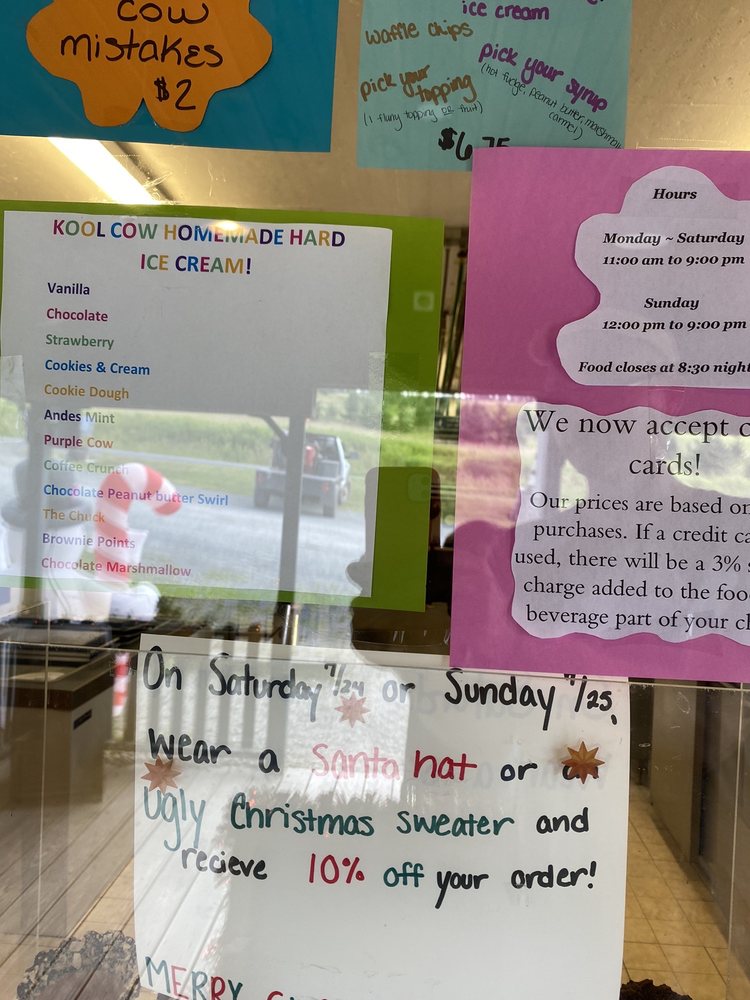 cow
mistakes
$2
ice cream
waffle chips
pick your
topping
(1 fluny topping OR fruit)
pick your syrup
(hot fudge, peanut butter, marshmallow
carmel)
KOOL COW HOMEMADE HARD
ICE CREAM!
Vanilla
Chocolate
Strawberry
Cookies & Cream
Cookie Dough
Andes Mint
Purple Cow
Coffee Crunch
Chocolate Peanut butter Swirl
The Chuck
Brownie Points
Chocolate Marshmallow
Hours
Monday ~ Saturday
11:00 am to 9:00 pm
Sunday
12:00 pm to 9:00 pm
Food closes at 8:30 night
We now accept
cards!
Our prices are based on
purchases. If a credit
used, there will be a 3%
charge added to the
beverage part of your
On Saturday 7/24 or Sunday 7/25,
wear a Santa hat or
Ugly Christmas sweater and
recieve 10% off your order!
MERRY